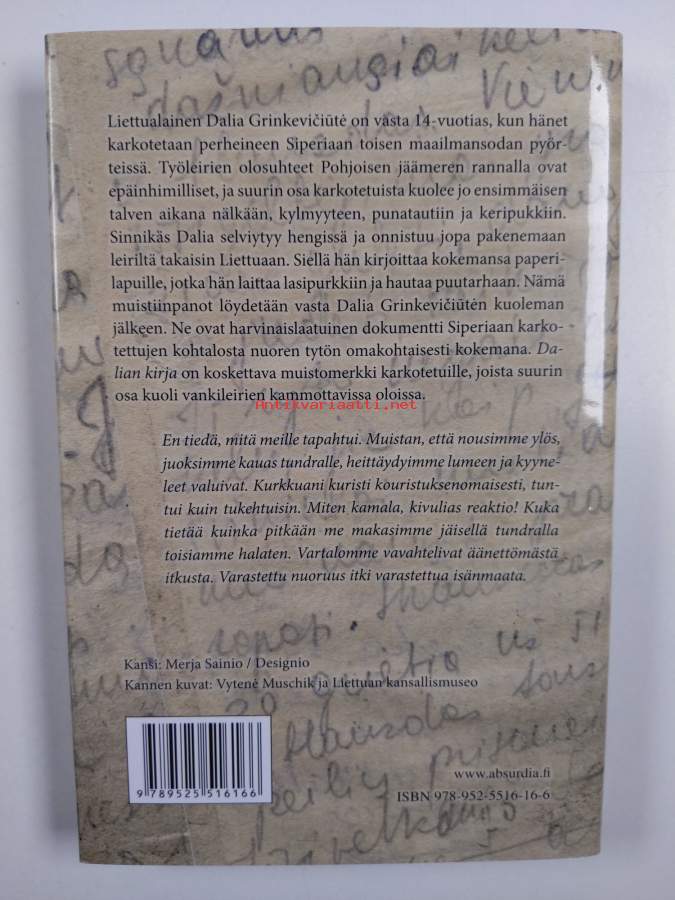 Liettualainen Dalia Grinkevičiūtė on vasta 14-vuotias, kun hänet
karkotetaan perheineen Siperiaan toisen maailmansodan pyör-
teissä. Työleirien olosuhteet Pohjoisen jäämeren rannalla ovat
epäinhimilliset, ja suurin osa karkotetuista kuolee jo ensimmäisen
talven aikana nälkään, kylmyyteen, punatautiin ja keripukkiin.
Sinnikäs Dalia selviytyy hengissä ja onnistuu jopa pakenemaan
leiriltä takaisin Liettuaan. Siellä hän kirjoittaa kokemansa paperi-
lapuille, jotka hän laittaa lasipurkkiin ja hautaa puutarhaan. Nämä
muistiinpanot löydetään vasta Dalia Grinkevičiūtėn kuoleman
jälkeen. Ne ovat harvinaislaatuinen dokumentti Siperiaan karko-
tettujen kohtalosta nuoren tytön omakohtaisesti kokemana. Da-
lian kirja on koskettava muistomerkki karkotetuille, joista suurin
osa kuoli vankileirien kammottavissa oloissa.
Antikvariaatti.net
En tiedä, mitä meille tapahtui. Muistan, että nousimme ylös,
juoksimme kauas tundralle, heittäydyimme lumeen ja kyyne-
leet valuivat. Kurkkuani kuristi kouristuksenomaisesti, tun-
tui kuin tukehtuisin. Miten kamala, kivulias reaktio! Kuka
tietää kuinka pitkään me makasimme jäisellä tundralla
toisiamme halaten. Vartalomme vavahtelivat äänettömästä
itkusta. Varastettu nuoruus itki varastettua isänmaata.
Kansi: Merja Sainio / Designio
Kannen kuvat: Vytenė Muschik ja Liettuan kansallismuseo
9 789525 516166
www.absurdia.fi
ISBN 978-952-5516-16-6